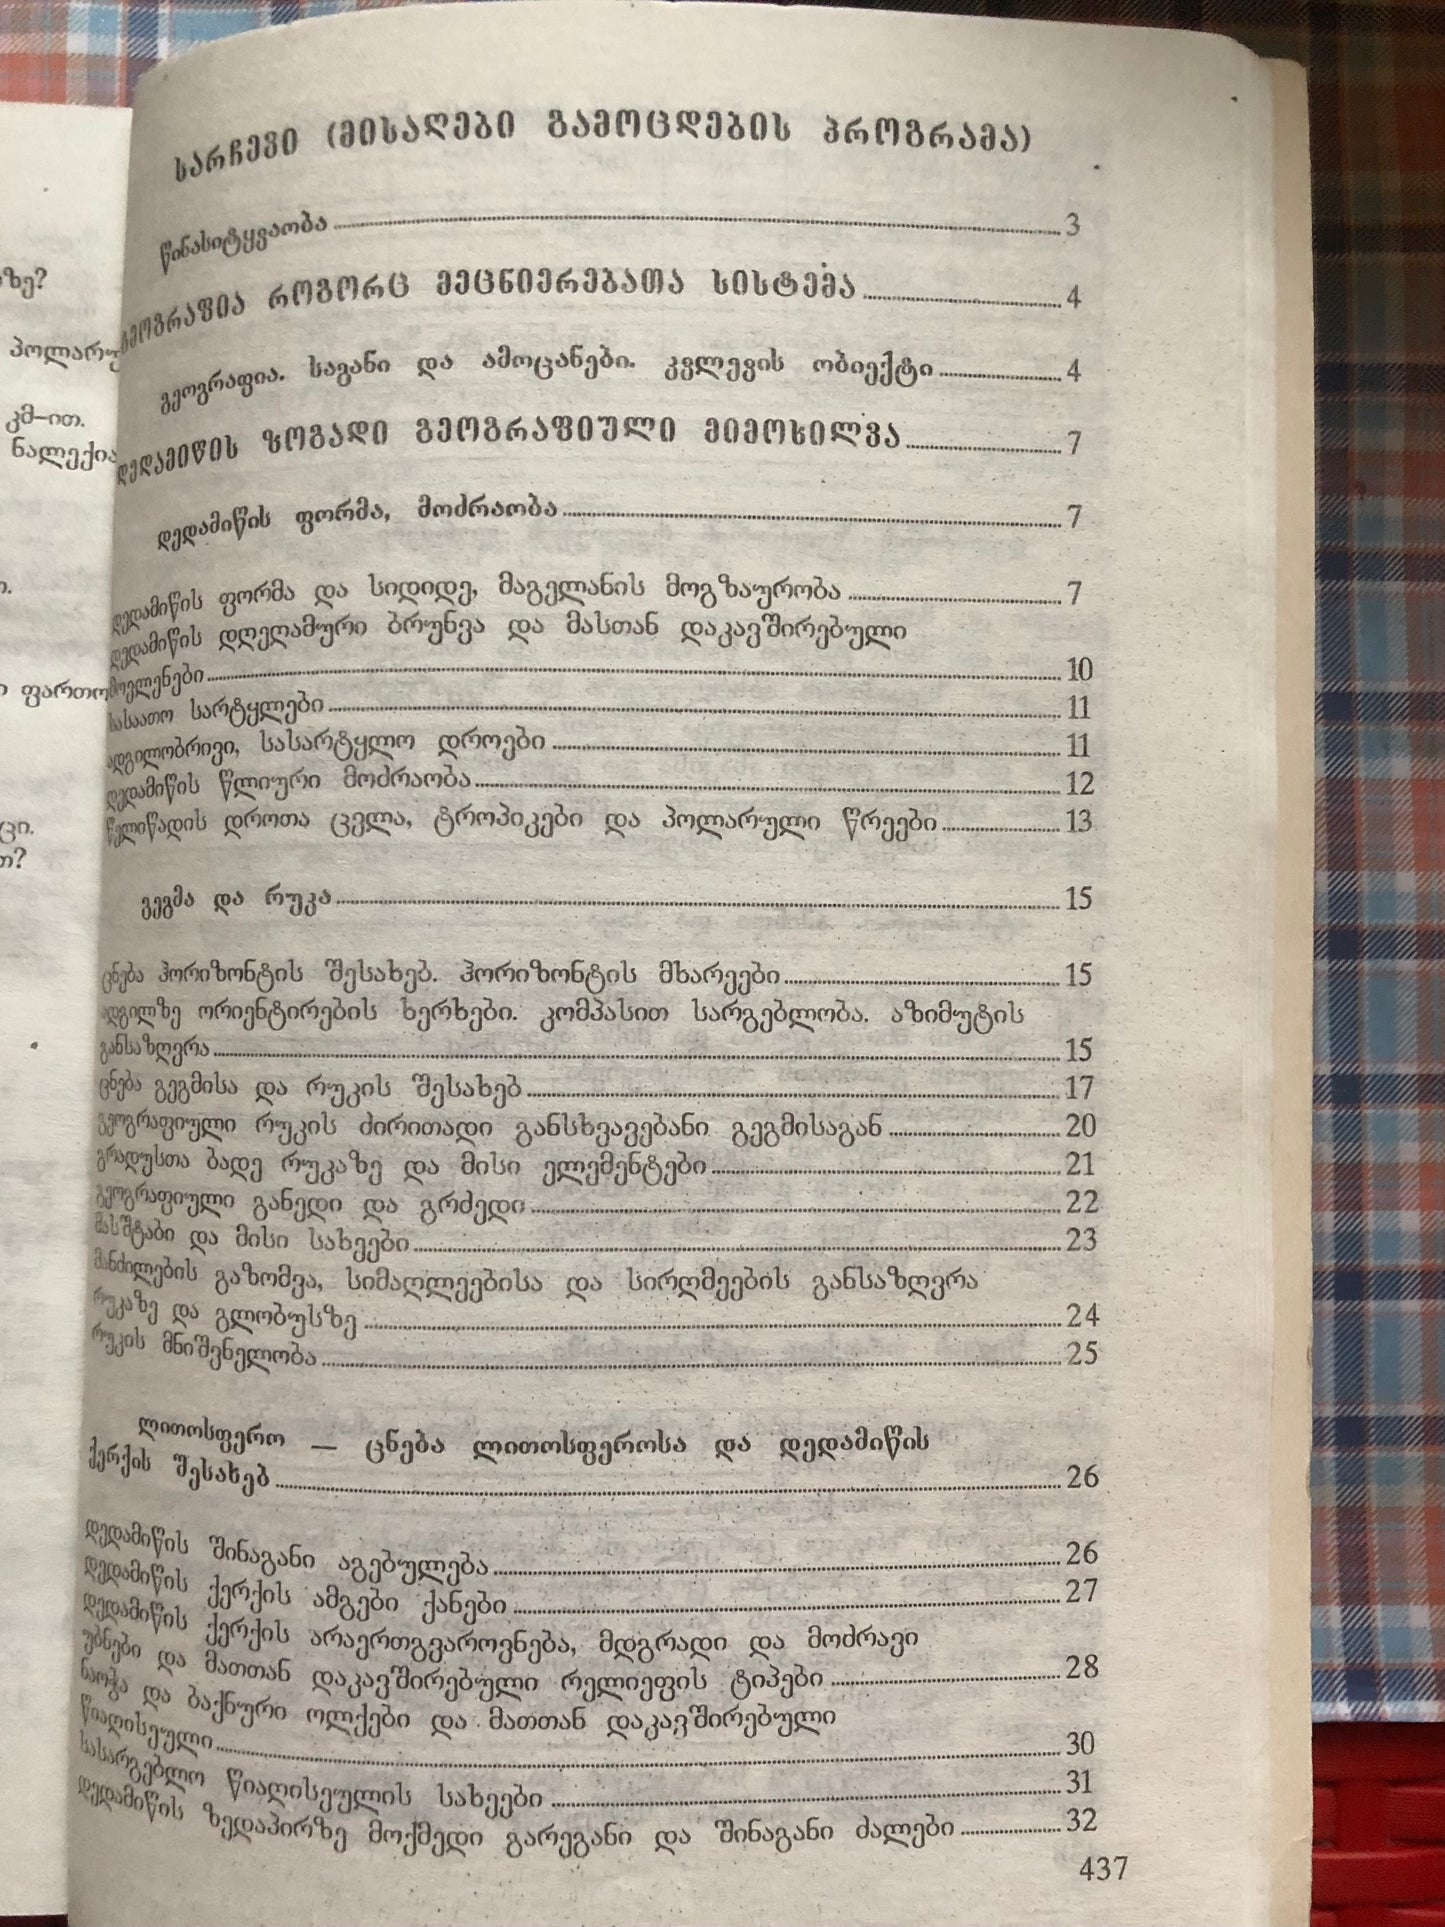 ზე?
პოლარუ
კმ–ით.
ნალექია
ფართო
ცი.
თ?
სარჩევი (მისაღები გამოცდების პროგრამა)
წინასიტყვაობა 3
გეოგრაფია როგორც მეცნიერებათა სისტემა 4
გეოგრაფია. საგანი და ამოცანები. კვლევის ობიექტი 4
დედამიწის ზოგადი გეოგრაფიული მიმოხილვა 7
დედამიწის ფორმა, მოძრაობა 7
დედამიწის ფორმა და სიდიდე, მაგელანის მოგზაურობა 7
დედამიწის დღეღამური ბრუნვა და მასთან დაკავშირებული
მოვლენები 10
სასაათო სარტყლები 11
ადგილობრივი, სასარტყლო დროები 11
დედამიწის წლიური მოძრაობა 12
წელიწადის დროთა ცვლა, ტროპიკები და პოლარული წრეები 13
გეგმა და რუკა 15
ცნება ჰორიზონტის შესახებ. ჰორიზონტის მხარეები 15
ადგილზე ორიენტირების ხერხები. კომპასით სარგებლობა. აზიმუტის
განსაზღვრა 15
ცნება გეგმისა და რუკის შესახებ 17
გეოგრაფიული რუკის ძირითადი განსხვავებანი გეგმისაგან 20
გრადუსთა ბადე რუკაზე და მისი ელემენტები 21
გეოგრაფიული განედი და გრძედი 22
მასშტაბი და მისი სახეები 23
მანძილების გაზომვა, სიმაღლეებისა და სირღმეების განსაზღვრა
რუკაზე და გლობუსზე 24
რუკის მნიშვნელობა 25
ლითოსფერო — ცნება ლითოსფეროსა და დედამიწის
ქერქის შესახებ 26
დედამიწის შინაგანი აგებულება 26
დედამიწის ქერქის ამგები ქანები 27
დედამიწის ქერქის არაერთგვაროვნება, მდგრადი და მოძრავი
უბნები და მათთან დაკავშირებული რელიეფის ტიპები 28
ნაოჭა და ბაქნური ოლქები და მათთან დაკავშირებული
წიაღისეული 30
სასარგებლო წიაღისეულის სახეები 31
დედამიწის ზედაპირზე მოქმედი გარეგანი და შინაგანი ძალები 32
437